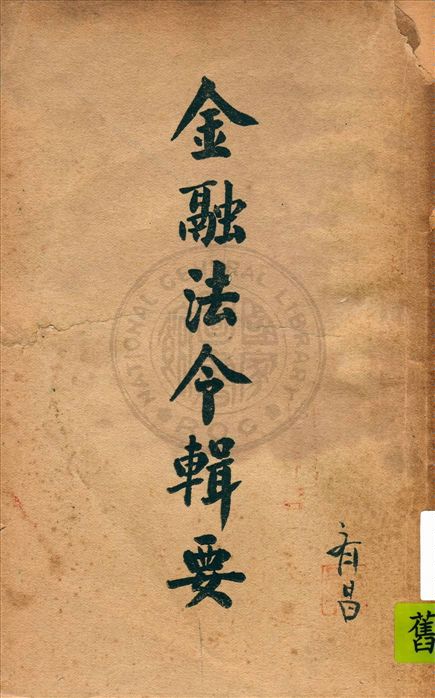 金融法令輯要
有昌
舊
NATIONAL CENTRAL